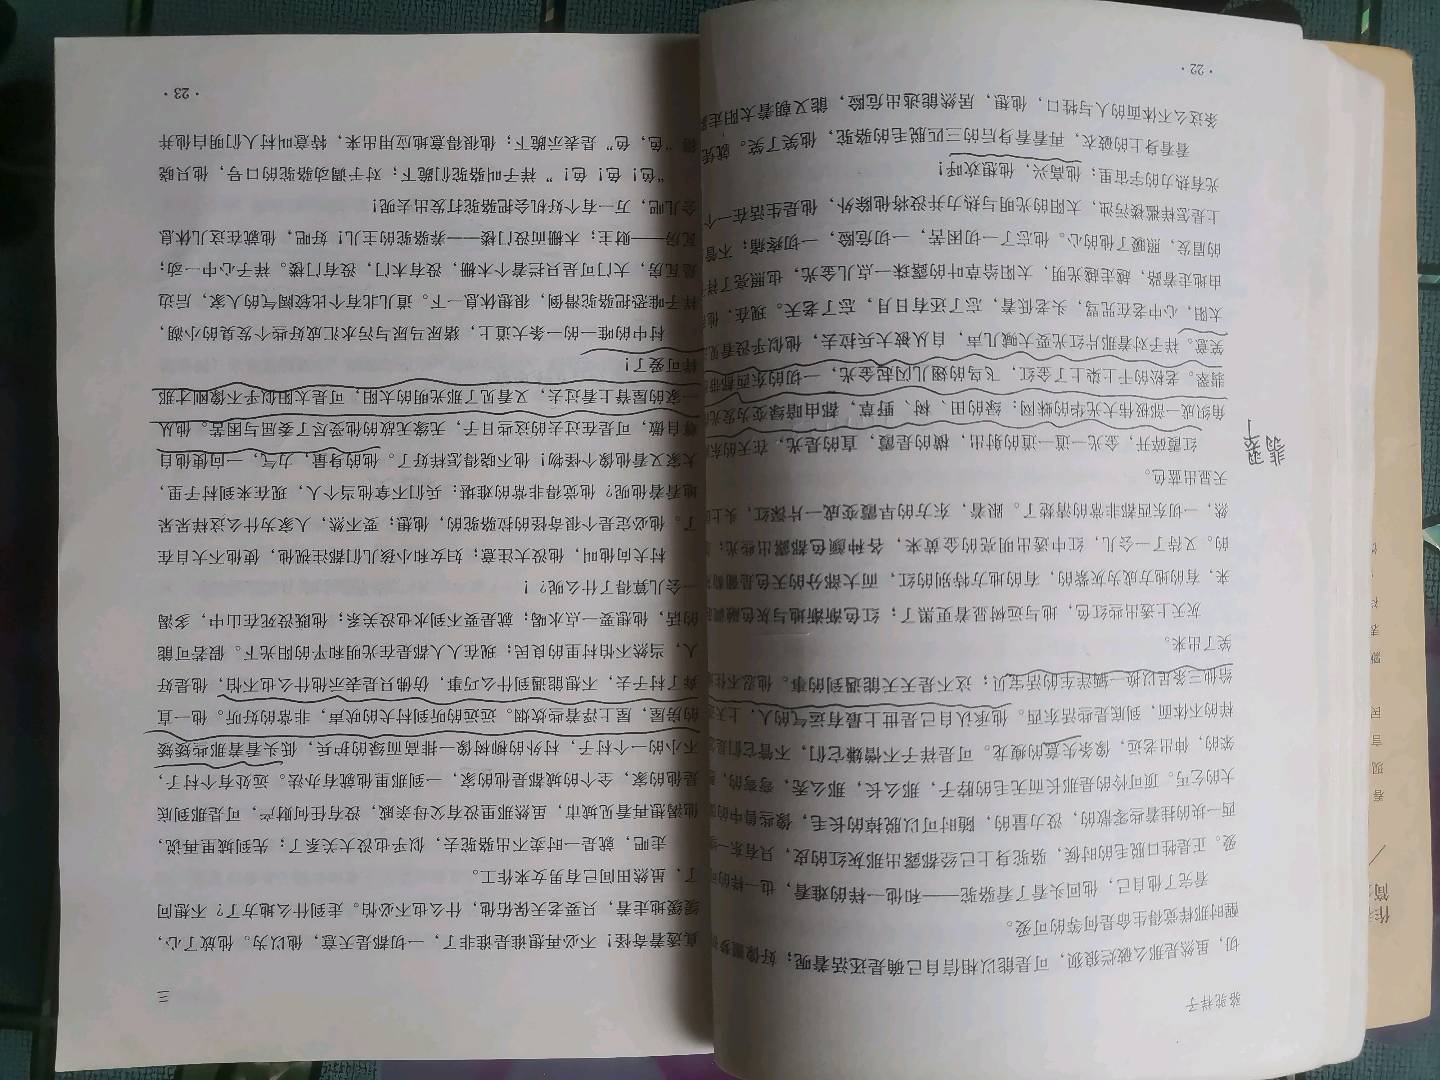 骆驼祥子
切，虽然是那么破烂狼狈，可是能以相信自己确是还活着呢；好像噩梦
醒时那样觉得生命是何等的可爱。
看完了他自己，他回头看了看骆驼——和他一样的难看，也一样的可
爱。正是牲口脱毛的时候，骆驼身上已经都露出那灰红的皮，只有东一
西一块的挂着些零散的，没力量的，随时可以脱掉的长毛，像些兽中的
大的乞丐。顶可怜的是那长而无毛的脖子，那么长，那么秃，弯弯的，
笨的，伸出老远，像条失意的瘦龙。可是祥子不憎嫌它们，不管它们是
样的不体面，到底是些活东西。他承认自己是世上最有运气的人，上天
给他三条足以换一辆洋车的活宝贝；这不是天天能遇到的事。他忍不住
笑了出来。
灰天上透出些红色，地与远树显着更黑了；红色渐渐地与灰色融调
来，有的地方成为灰紫的，有的地方特别的红，而大部分的天色是葡萄
的。又待了一会儿，红中透出明亮的金黄来，各种颜色都露出些光；
然，一切东西都非常的清楚了。跟着，东方的早霞变成一片深红，头上
天显出蓝色。
红霞碎开，金光一道一道的射出，横的是霞，直的是光，在天的东
角织成一部极伟大光华的蛛网：绿的田、树、野草，都由暗绿变为发光
翡翠。老松的干上染上了金红，飞鸟的翅儿闪起金光，一切的东西都带
笑意。祥子对着那片红光要大喊几声，自从被大兵拉去，他似乎没看见
太阳，心中老在咒骂，头老低着，忘了还有日月，忘了老天。现在，他
由地走着路，越走越光明，太阳给草叶的露珠一点儿金光，也照亮了祥
的眉发，照暖了他的心。他忘了一切困苦，一切危险，一切疼痛；不管
上是怎样褴褛污浊，太阳的光明与热力并没将他除外，他是生活在一个
光有热力的宇宙里；他高兴，他想欢呼！
看看身上的破衣，再看看身后的三匹脱毛的骆驼，他笑了笑。就凭
条这么不体面的人与牲口，他想，居然能逃出危险，能又朝着太阳走
·22·
翡翠
三
真透着奇怪！不必再想谁是谁非了，一切都是天意，他以为。他放了心，
缓缓地走着，只要老天保佑他，什么也不必怕。走到什么地方了？不想问
了，虽然田间已有男女来作工。
走吧，就是一时卖不出骆驼去，似乎也没大关系了；先到城里再说，
他渴想再看见城市，虽然那里没有父母亲戚，没有任何财产，可是那到底
是他的家，全个的城都是他的家，一到那里他就有办法。远处有个村子，
不小的一个村子，村外的柳树像一排高而绿的护兵，低头看着那些矮矮
的房屋，屋上浮着些炊烟。远远的听到村犬的吠声，非常的好听。他一直
奔了村子去，不想能遇到什么巧事，仿佛只是表示他什么也不怕，他是好
人，当然不怕村里的良民；现在人人都是在光明和平的阳光下。假若可能
的话，他想要一点水喝；就是要不到水也没关系；他既没死在山中，多渴
一会儿算得了什么呢？！
村犬向他叫，他没大注意；妇女和小孩儿们都注视他，使他不大自在
了。他必定是个很奇怪的拉骆驼的，他想；要不然，人家为什么这样呆呆
地看着他呢？他觉得非常的难堪：兵们不拿他当个人，现在来到村子里，
大家又看他像个怪物！他不晓得怎样好了。他的身量，力气，一向使他自
尊自傲，可是在过去的这些日子，无缘无故的他受尽了委屈与困苦。他从
一家的屋脊上看过去，又看见了那光明的太阳，可是太阳似乎不像刚才那
样可爱了！
村中的唯一的一条大道上，猪尿马尿与污水汇成好些个发臭的小湖，
祥子唯恐把骆驼滑倒，很想休息一下。道儿北有个比较阔气的人家，后边
是瓦房，大门可是只拦着个木栅，没有木门，没有门楼。祥子心中一动；
瓦房——财主；木栅而没门楼——养骆驼的主儿！好吧，他就在这儿休息
会儿吧，万一有个好机会把骆驼打发出去呢！
“色！色！色！”祥子叫骆驼们跪下；对于调动骆驼的口号，他只晓
得“色，色”是表示跪下；他很得意地应用出来，特意叫村人们明白他并
·23·